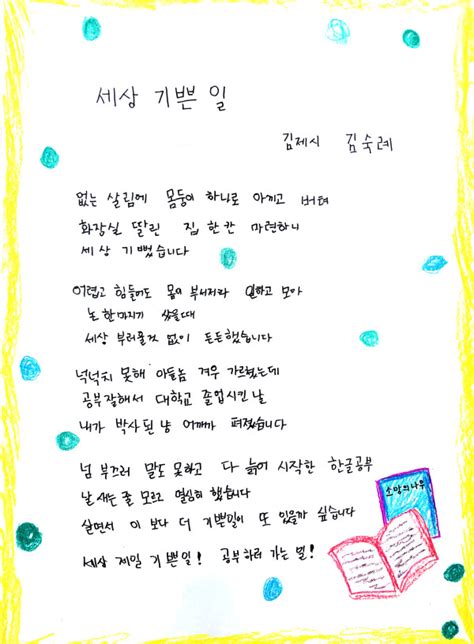 세상 기쁜 일
김제시 김숙례
없는 살림에 몸둥이 하나로 아끼고 버텨
화장실 딸린 집 한칸 마련하니
세상 기뻤습니다
어렵고 힘들어도 몸이 부서져라 일하고 모아
논 한마지기 샀을때
세상 부러울것 없이 든든했습니다
넉넉치 못해 아들놈 겨우 가르쳤는데
공부잘해서 대학교 졸업시킨 날
내가 박사된 냥 어깨가 펴졌습니다
넘 부끄러 말도 못하고 다 늙어 시작한 한글공부
날 새는 줄 모르고 열심히 했습니다
살면서 이 보다 더 기쁜일이 또 있을까 싶습니다
세상 제일 기쁜일! 공부하러 가는 일!
소망의나무